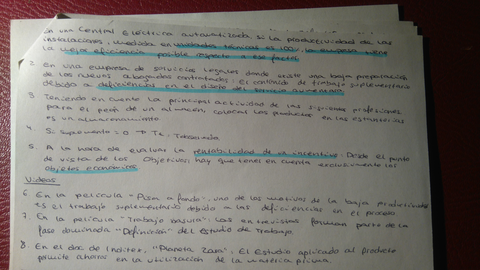 En una Central Eléctrica automatizada si la productividad de las
instalaciones, medida en unidades técnicas es 100, la empresa tiene
la mejor eficiencia posible respecto a ese factor.
2. En una empresa de servicios legales donde existe una baja preparación
de los nuevos abogados contratados. El contenido de trabajo suplementario
debido a deficiencias en el diseño del servicio aumentará.
3. Teniendo en cuenta la principal actividad de las siguientes profesiones
para el peón de un almacén, colocar los productos en las estanterías
es un almacenamiento
4. Si suplemento = 0 → Te: Totosaludo
5. A la hora de evaluar la rentabilidad de un incentivo: Desde el punto
de vista de los Objetivos; hay que tener en cuenta exclusivamente los
objetos económicos.
Videos
6. En la película "Pisa a fondo", uno de los motivos de la baja productividad
es el trabajo suplementario debido a las deficiencias en el proceso
7. En la película "Trabajo basura": Las entrevistas forman parte de la
fase dominada "Definición" del Estudio de Trabajo
8. En el doc de Inditex, "Planeta Zara". El Estudio aplicado al producto
permite ahorros en la utilización de la materia prima.